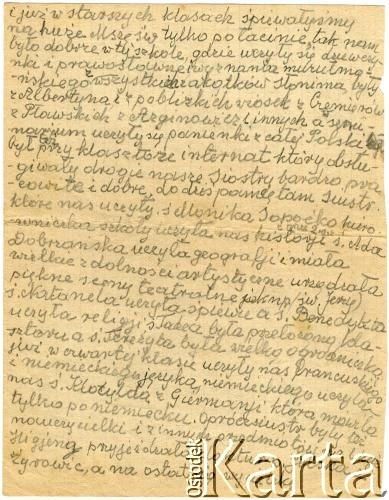 i już w starszych klasach śpiewałyśmy
na hurze Mszę św. tylko po łacinie, tak nam
było dobrze w tej szkole, gdzie uczyły się dziewczy-
nki i prawosławne i wyznania
ze wszystkich zakątków Słonima były
z Albertyna i z pobliskich wiosek z
z Pławskich z i innych a semi-
narium uczyły się panienki z całej Polski
był przy klasztorze internat który obsłu-
giwały drogie nasze Siostry bardzo pra-
cowite i dobre, do dziś pamiętam Siostr.
które nas uczyły s. Monika Sopoćko kiero-
wniczka szkoły uczyła nas historji s. Ada
Dobrzańska uczyła geografji i miała
wielkie zdolności artystyczne urządzała
piękne sceny teatralne np. św. Jerzy
s. Natanela uczyła śpiewu a s. Benedykta
uczyła religji, s. była przełożoną kla-
sztoru a s. Tereżyta była wielką ogrodniczką
już w czwartej klasie uczyły nas francuskiego
i niemieckiego języka, niemieckiego uczyła
nas s. Klotylda z Giermanji która mówiła
tylko po niemiecku. Oprócz siostr były też
nauczycielki i z innych przedmiotów
Higjenę przyjeżdżał
Żyrowic, a na
Ośrodek Karta